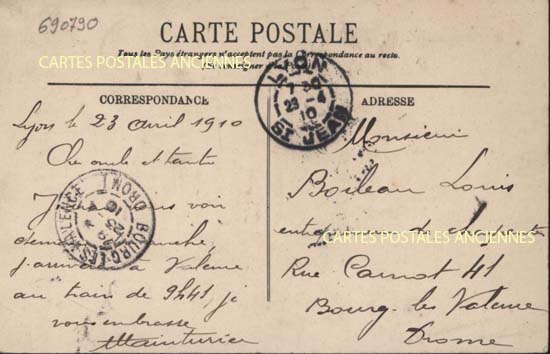 690790
CARTE POSTALE
Tous les Pays étrangers n'acceptent pas la Correspondance au recto.
CARTES POSTALES ANCIENNES
CORRESPONDANCE
ADRESSE
LYON
7 30
23 - 4
10
ST JEAN
Lyon le 23 avril 1910
Cher oncle et tante
voir
j'arriverai à Valence
au train de 9h41 je
vous embrasse
BOURG-LES-VALENCE
DROME
Monsieur
Boileau Louis
entrepreneur de
CARTES POSTALES ANCIENNES
Rue Carnot 41
Bourg les Valence
Drome